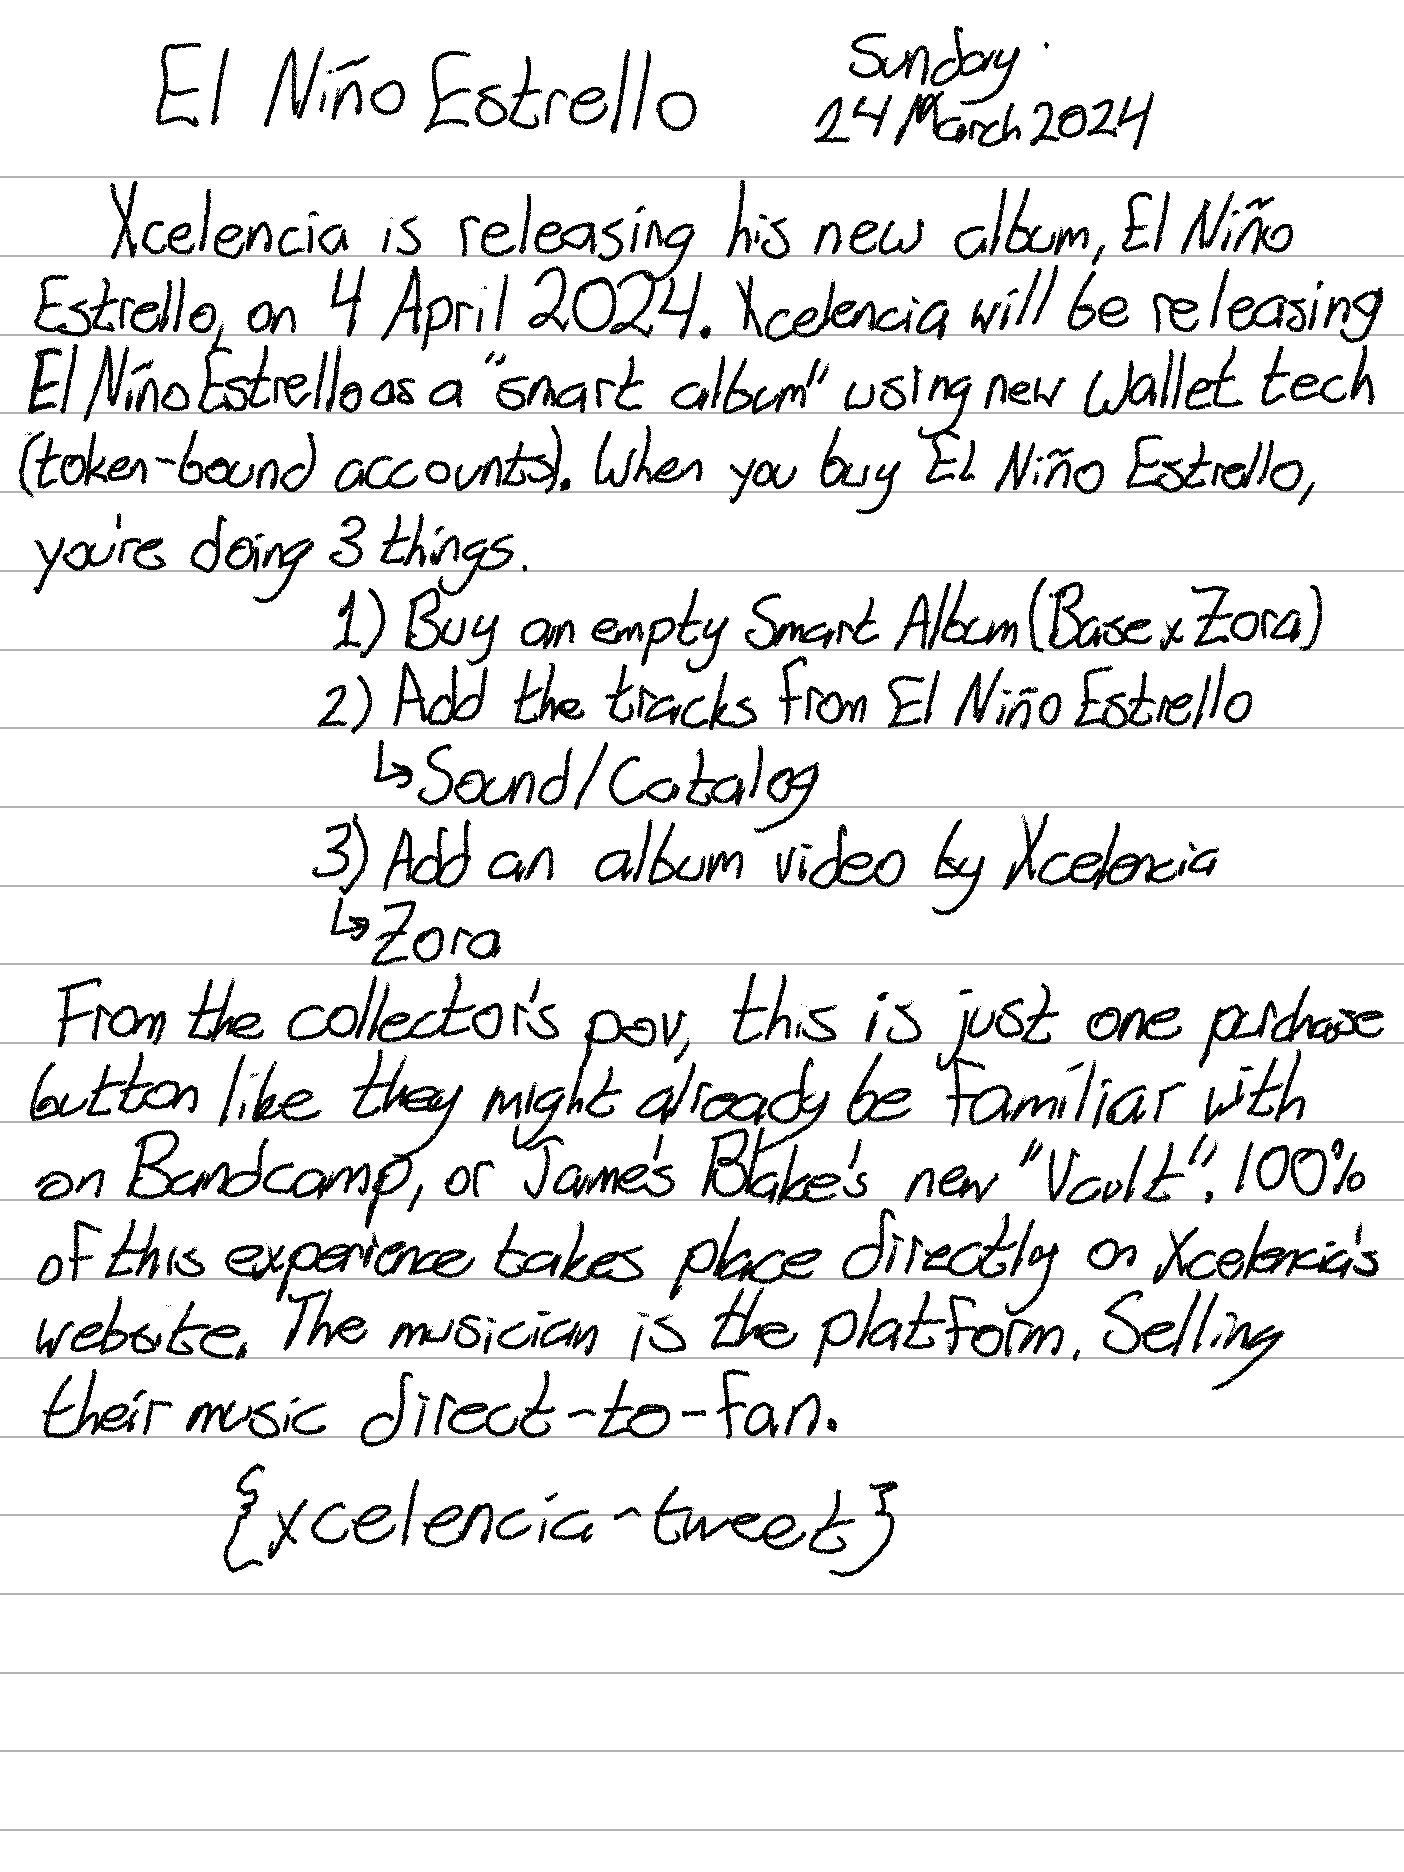 El Niño Estrello
Sunday
24 March 2024
Xcelencia is releasing his new album, El Niño
Estrello, on 4 April 2024. Xcelencia will be releasing
El Niño Estrello as a "smart album" using new wallet tech
(token-bound accounts). When you buy El Niño Estrello,
you're doing 3 things.
1) Buy an empty Smart Album (Base x Zora)
2) Add the tracks from El Niño Estrello
↳ Sound/Catalog
3) Add an album video by Xcelencia
↳ Zora
From the collector's pov, this is just one purchase
button like they might already be familiar with
on Bandcamp, or James's Blake's new "Vault". 100%
of this experience takes place directly on Xcelencia's
website. The musician is the platform. Selling
their music direct-to-fan.
{xcelencia-tweet}